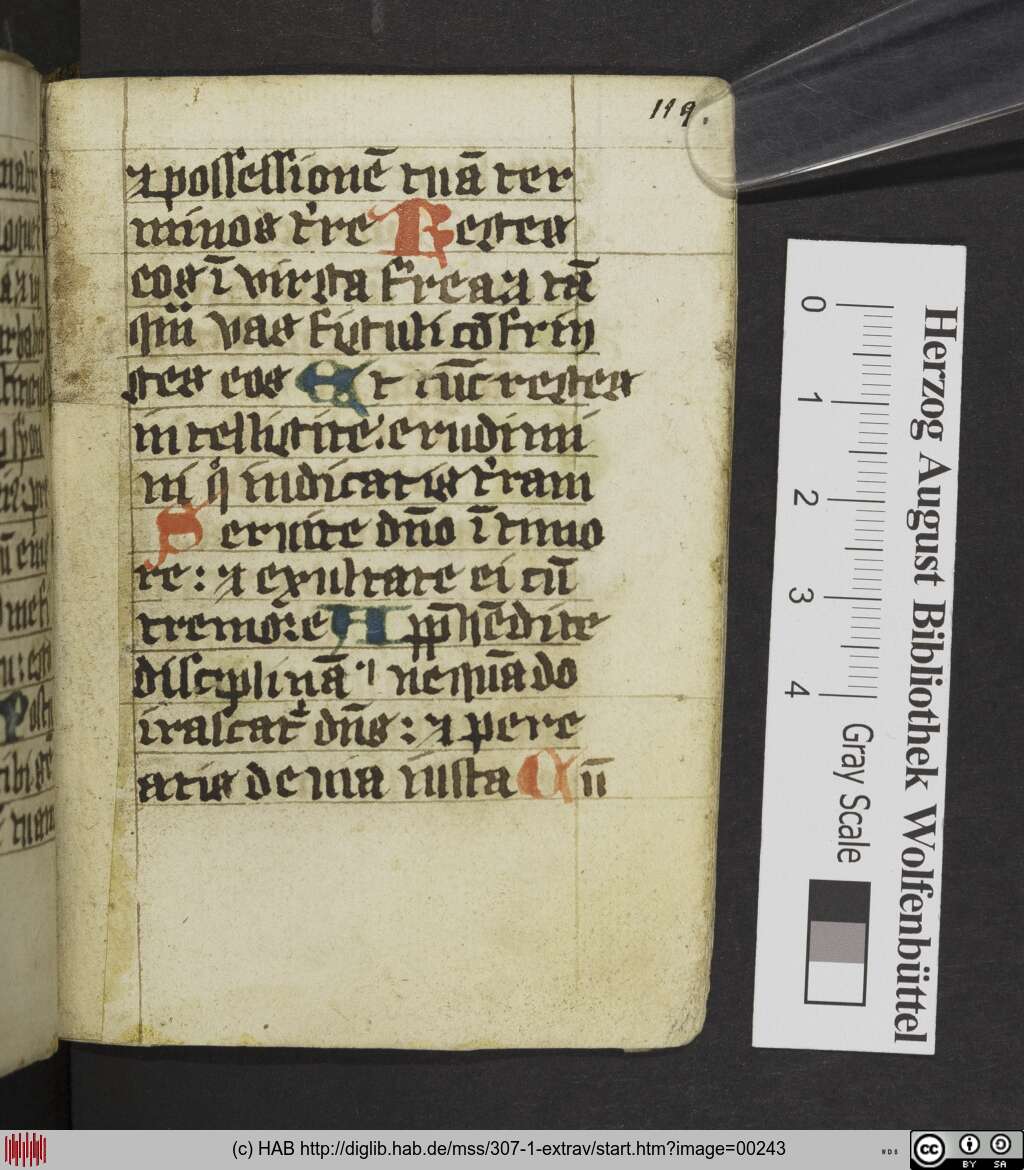 119.
⁊ possessionē tuā ter
minos t̄re Reges
eos ī virga ferrea ⁊ tā
qͣm vas figuli cōfrin
ges eos Et nūc reges
intelligite: erudimi
ni qͥ iudicatis t̄ram
Seruite dn̄o ī timo
re: ⁊ exultate ei cū
tremore App̄hēdite
disciplinā ne quādo
irascat᷑ dn̄s: ⁊ pere
atis de uia iusta Cū
Herzog August Bibliothek Wolfenbüttel
0 1 2 3 4 Gray Scale
(c) HAB http://diglib.hab.de/mss/307-1-extrav/start.htm?image=00243
cc BY SA